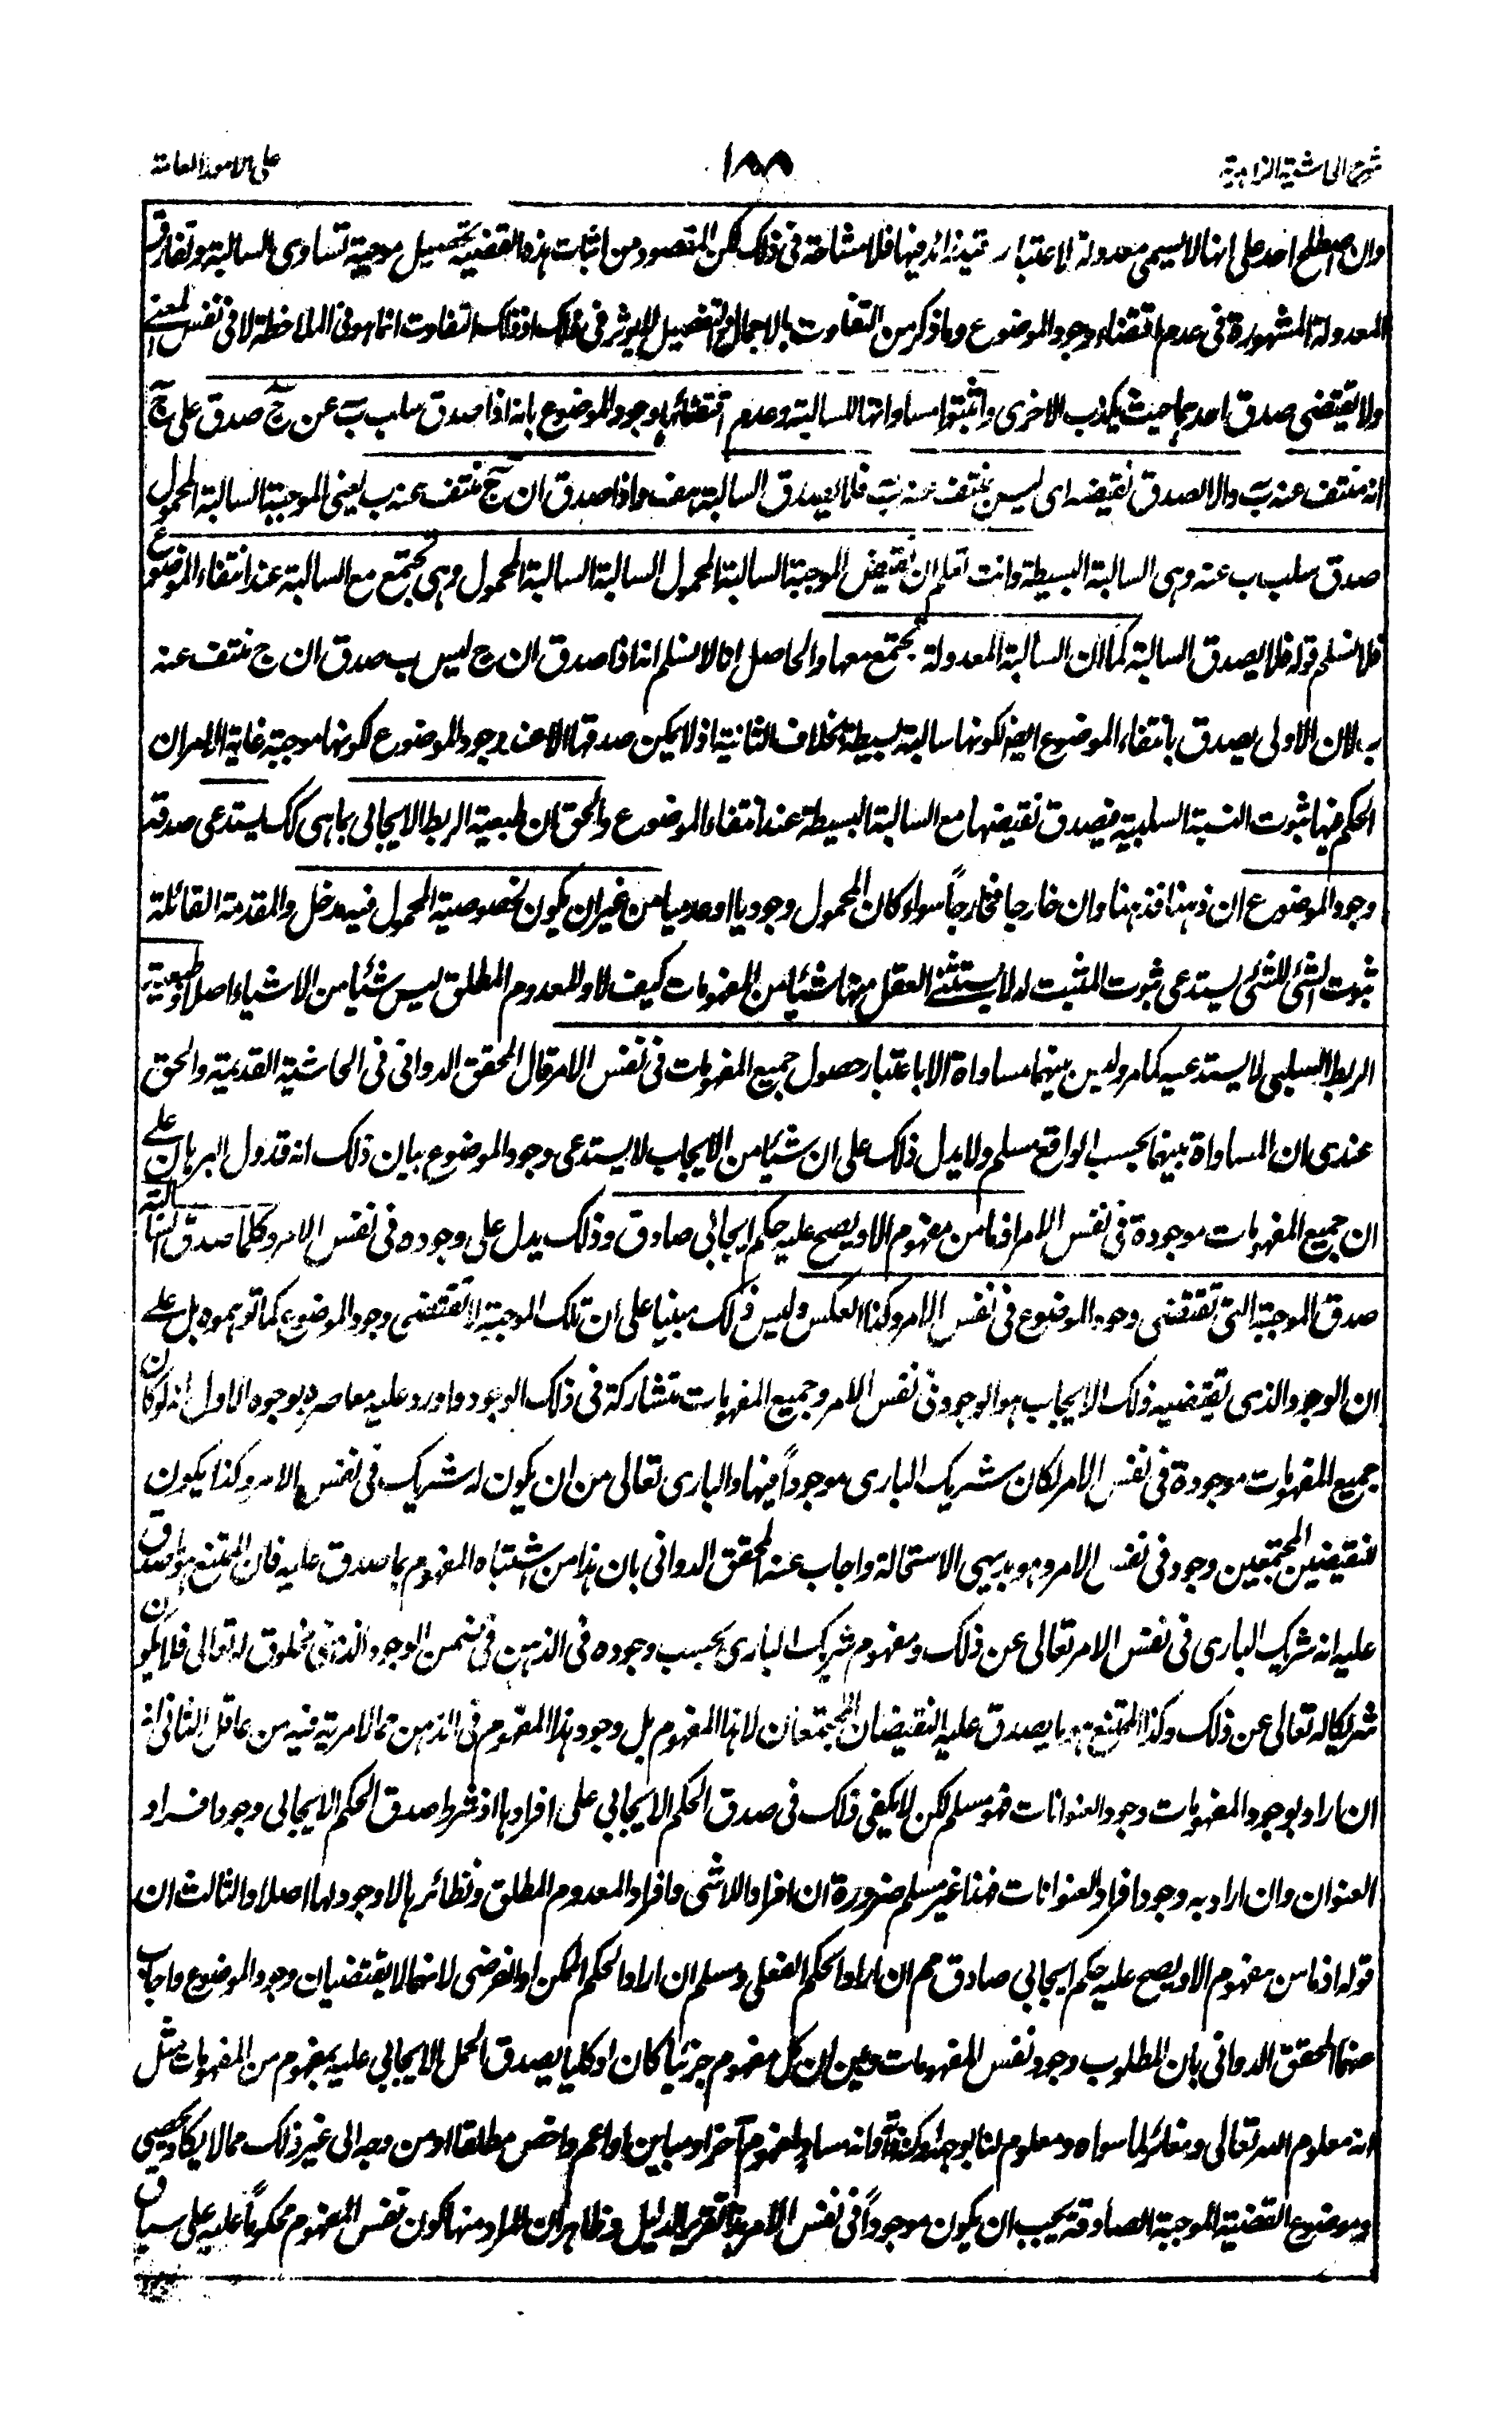 شرح الحاشية الزاهدية ١٨٨ على الامور العامة
وان اصطلح احد على انها لا يسمى معدولة لاعتبار قيد زائد فيها فلا مشاحة فى ذلك لكن المقصود من اثبات هذه القضية تحصيل موجبة تساوى السالبة وتفارق
المعدولة المشهورة فى عدم اقتضاء وجود الموضوع وما ذكر من التفاوت بالاجمال والتفصيل لا يؤثر فى ذلك اذ ذلك التفاوت انما هو فى الملاحظة لا فى نفس المعنى
ولا يقتضى صدق احدهما حيث يكذب الاخرى واثبتوا مساواتها للسالبة وعدم اقتضائها وجود الموضوع بانه اذا صدق سلب ب عن ج صدق على ج
انه منتف عنه ب والا لصدق نقيضه اى ليس منتف عنه ب فلا يصدق السالبة هف واذا صدق ان ج منتف عنه ب يعنى الموجبة السالبة المحمول
صدق سلب ب عنه وهى السالبة البسيطة وانت تعلم ان نقيض الموجبة السالبة المحمول السالبة السالبة المحمول وهى تجتمع مع السالبة عند انتفاء الموضوع
فلا نسلم قوله فلا يصدق السالبة كما ان السالبة المعدولة تجتمع معها والحاصل انا لا نسلم انه اذا صدق ان ج ليس ب صدق ان ج منتف عنه
ب لان الاولى يصدق بانتفاء الموضوع ايضا لكونها سالبة بسيطة بخلاف الثانية اذ لا يمكن صدقها الا عند وجود الموضوع لكونها موجبة غاية الامر ان
الحكم فيها ثبوت النسبة السلبية فيصدق نقيضها مع السالبة البسيطة عند انتفاء الموضوع والحق ان طبيعة الربط الايجابى بما هى كك يستدعى صدقه
وجود الموضوع ان ذهنا فذهنا وان خارجا فخارجاً سواء كان المحمول وجوديا او عدميا من غير ان يكون لخصوصية المحمول فيه مدخل والمقدمة القائلة
ثبوت الشئ للشئ يستدعى ثبوت المثبت له لا يستثنى العقل منها شيئا من المفهومات كيف لا والمعدوم المطلق ليس شيئا من الاشياء اصلا وطبيعة
الربط السلبى لا يستدعيه كما مر وليس بينهما مساواة الا باعتبار حصول جميع المفهومات فى نفس الامر قال المحقق الدوانى فى الحاشية القديمة والحق
عندى ان المساواة بينهما بحسب الواقع مسلم ولا يدل ذلك على ان شيئا من الايجاب لا يستدعى وجود الموضوع بيان ذلك انه قد دل البرهان على
ان جميع المفهومات موجودة فى نفس الامر اذ ما من مفهوم الا ويصح عليه حكم ايجابى صادق وذلك يدل على وجوده فى نفس الامر وكلما صدق السالبة
صدق الموجبة التى تقتضى وجود الموضوع فى نفس الامر وكذا العكس وليس ذلك مبنيا على ان تلك الموجبة لا تقتضى وجود الموضوع كما توهموه بل على
ان الوجود الذى يقتضيه ذلك الايجاب هو الوجود فى نفس الامر وجميع المفهومات متشاركة فى ذلك الوجود واورد عليه معاصره بوجوه الاول انه لو كان
جميع المفهومات موجودة فى نفس الامر لكان شريك البارى موجوداً فيها والبارى تعالى من ان يكون له شريك فى نفس الامر وكذا يكون
للنقيضين المجتمعين وجود فى نفس الامر وهو بديهى الاستحالة واجاب عنه المحقق الدوانى بان هذا من اشتباه المفهوم بما صدق عليه فان الممتنع هو ما صدق
عليه انه شريك البارى فى نفس الامر تعالى عن ذلك ومفهوم شريك البارى بحسب وجوده فى الذهن فى ضمن الوجود الذهنى مخلوق له تعالى فلا يكون
شريكا له تعالى عن ذلك وكذا الممتنع هو ما يصدق عليه النقيضان المجتمعان لا هذا المفهوم بل وجود هذا المفهوم فى الذهن مما لا مرية فيه من عاقل الثانى انه
ان اراد بوجود المفهومات وجود العنوانات فهو مسلم لكن لا يكفى ذلك فى صدق الحكم الايجابى على افرادها اذ شرط صدق الحكم الايجابى وجود افراد
العنوان وان اراد به وجود افراد العنوانات فهذا غير مسلم ضرورة ان افراد اللاشى وافراد المعدوم المطلق ونظائرها لا وجود لها اصلا والثالث ان
قوله اذ ما من مفهوم الا ويصح عليه حكم ايجابى صادق مم ان اراد الحكم الفعلى ومسلم ان اراد الحكم الممكن او الفرضى لانهما لا يقتضيان وجود الموضوع واجاب
عنهما المحقق الدوانى بان المطلوب وجود نفس المفهومات وبين ان كل مفهوم جزئيا كان او كليا يصدق الحمل الايجابى عليه بمفهوم من المفهومات مثل
انه معلوم الله تعالى ومغائر لما سواه ومعلوم لنا بوجه او كنه وانه مساو لمفهوم آخر او مباين او اعم او اخص مطلقا او من وجه الى غير ذلك مما لا يكاد يحصى
وموضوع القضية الموجبة الصادقة يجب ان يكون موجوداً فى نفس الامر هذا تقرير الدليل وظاهر ان المراد منها كون نفس المفهوم محكوماً عليه على سياق